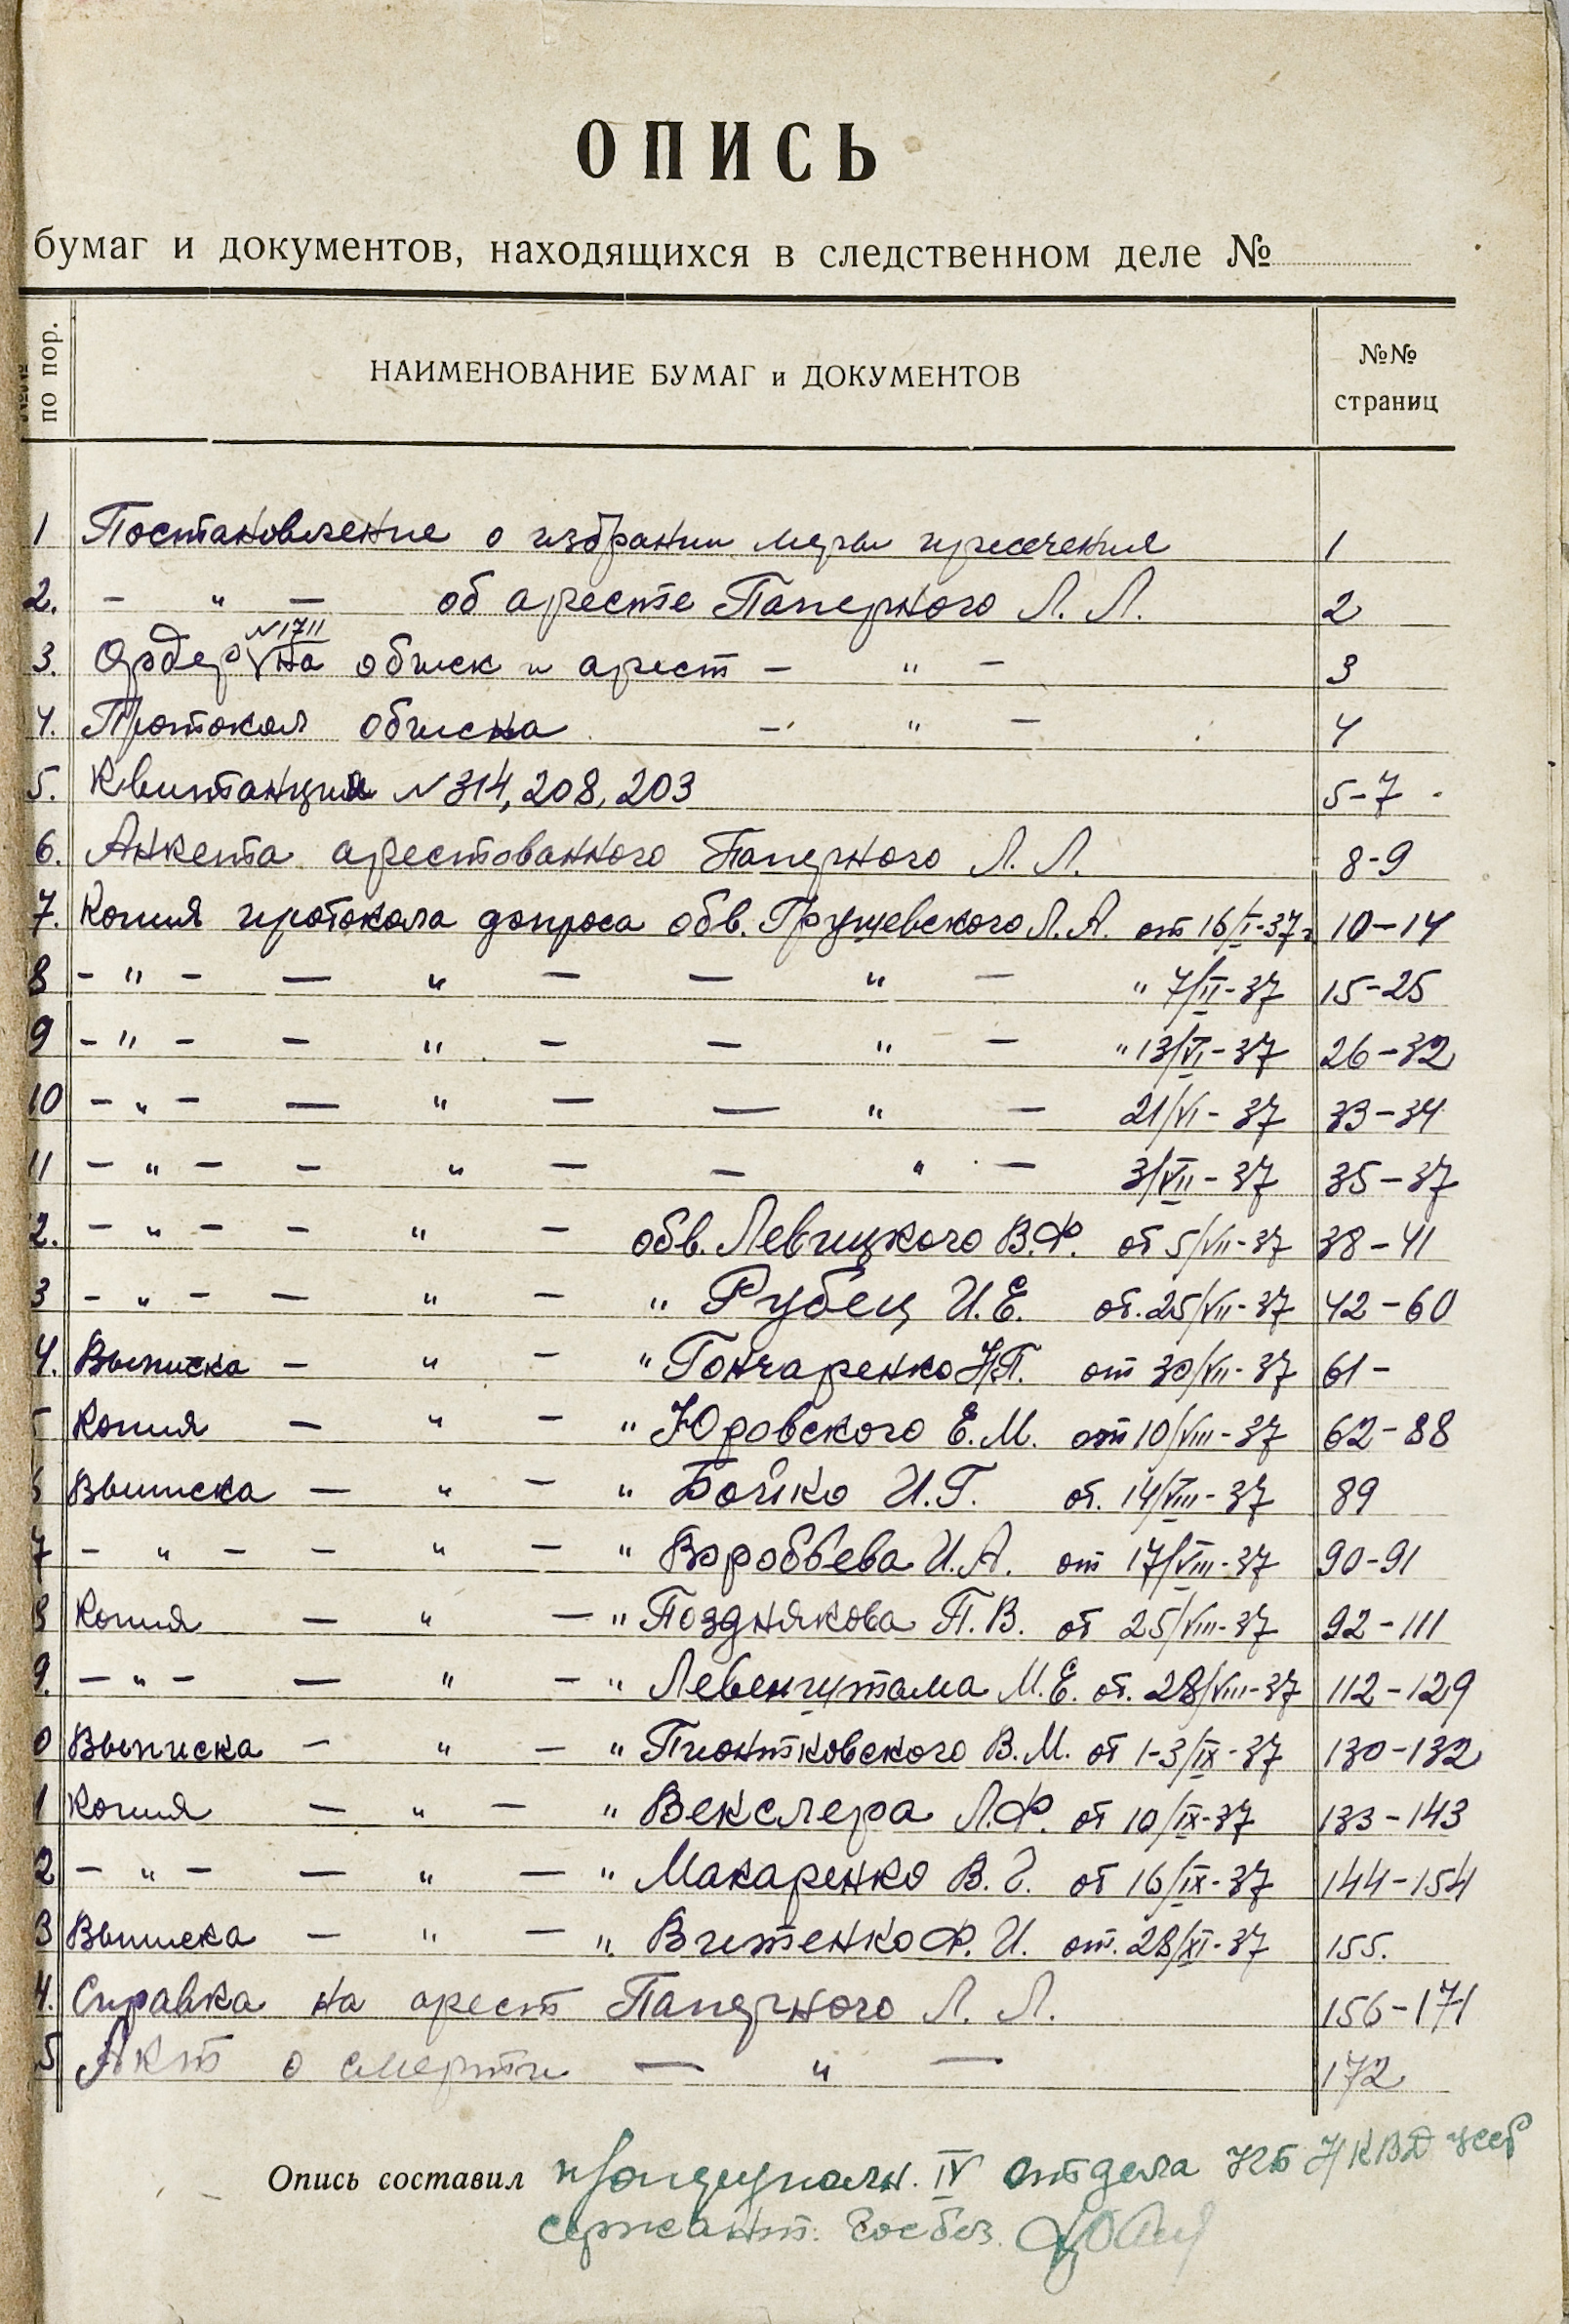 ОПИСЬ
бумаг и документов, находящихся в следственном деле №
по пор. НАИМЕНОВАНИЕ БУМАГ и ДОКУМЕНТОВ №№ страниц
1 Постановление о избрании меры пресечения 1
2. - " - об аресте Паперного Л. Л. 2
3. Ордер N1711 на обыск и арест - " - 3
4. Протокол обыска - " - 4
5. Квитанция N 314, 208, 203 5-7
6. Анкета арестованного Паперного Л. Л. 8-9
7. Копия протокола допроса обв. Грушевского Л. А. от 16/I-37г 10-14
8 - " - - " - - " - " 7/II-37 15-25
9 - " - - " - - " - " 13/VI-37 26-32
10 - " - - " - - " - 21/VI-37 33-34
11 - " - - " - - " - 3/VII-37 35-37
2. - " - - " - обв. Левицкого В.Ф. от 5/VII-37 38-41
3 - " - - " - " Рубец И.Е. от. 25/VII-37 42-60
4. Выписка - " - " Гончаренко Н.П. от 30/VII-37 61-
Копия - " - " Юровского Е.М. от 10/VIII-37 62-88
Выписка - " - " Бойко И.Г. от. 14/VIII-37 89
7 - " - - " - " Воробьева И.А. от 17/VIII-37 90-91
8 Копия - " - " Позднякова П.В. от 25/VIII-37 92-111
9. - " - - " - " Левенштама М.Е. от. 28/VIII-37 112-129
0 Выписка - " - " Пионтковского В.М. от 1-3/IX-37 130-132
1 Копия - " - " Векслера Л.Ф. от 10/IX-37 133-143
2 - " - - " - " Макаренко В. Г. от 16/IX-37 144-154
3 Выписка - " - " Витенко Ф. И. от. 28/XI-37 155.
4. Справка на арест Паперного Л. Л. 156-171
5 Акт о смерти - " - 172
Опись составил IV отдела НКВД УССР
сержант. Госбез.